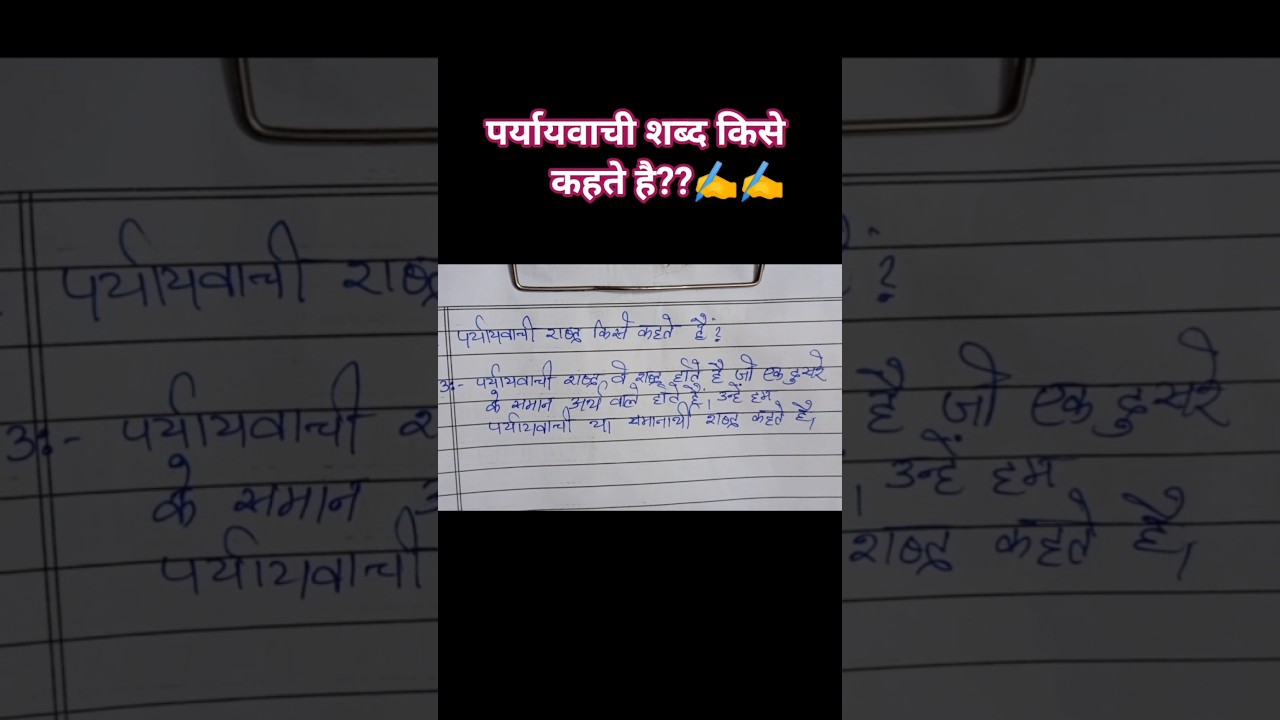 पर्यायवाची शब्द किसे
कहते है??✍✍
पर्यायवाची शब्द किसे कहते हैं?
उ:- पर्यायवाची शब्द वे शब्द होते है जो एक दुसरे
के समान अर्थ वाले होते हैं। उन्हें हम
पर्यायवाची या समानार्थी शब्द कहते है।